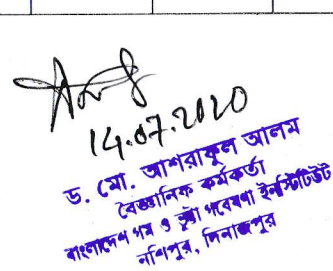 14.07.2020
ড. মো. আশরাফুল আলম
বৈজ্ঞানিক কর্মকর্তা
বাংলাদেশ গম ও ভুট্টা গবেষণা ইনস্টিটিউট
নশিপুর, দিনাজপুর